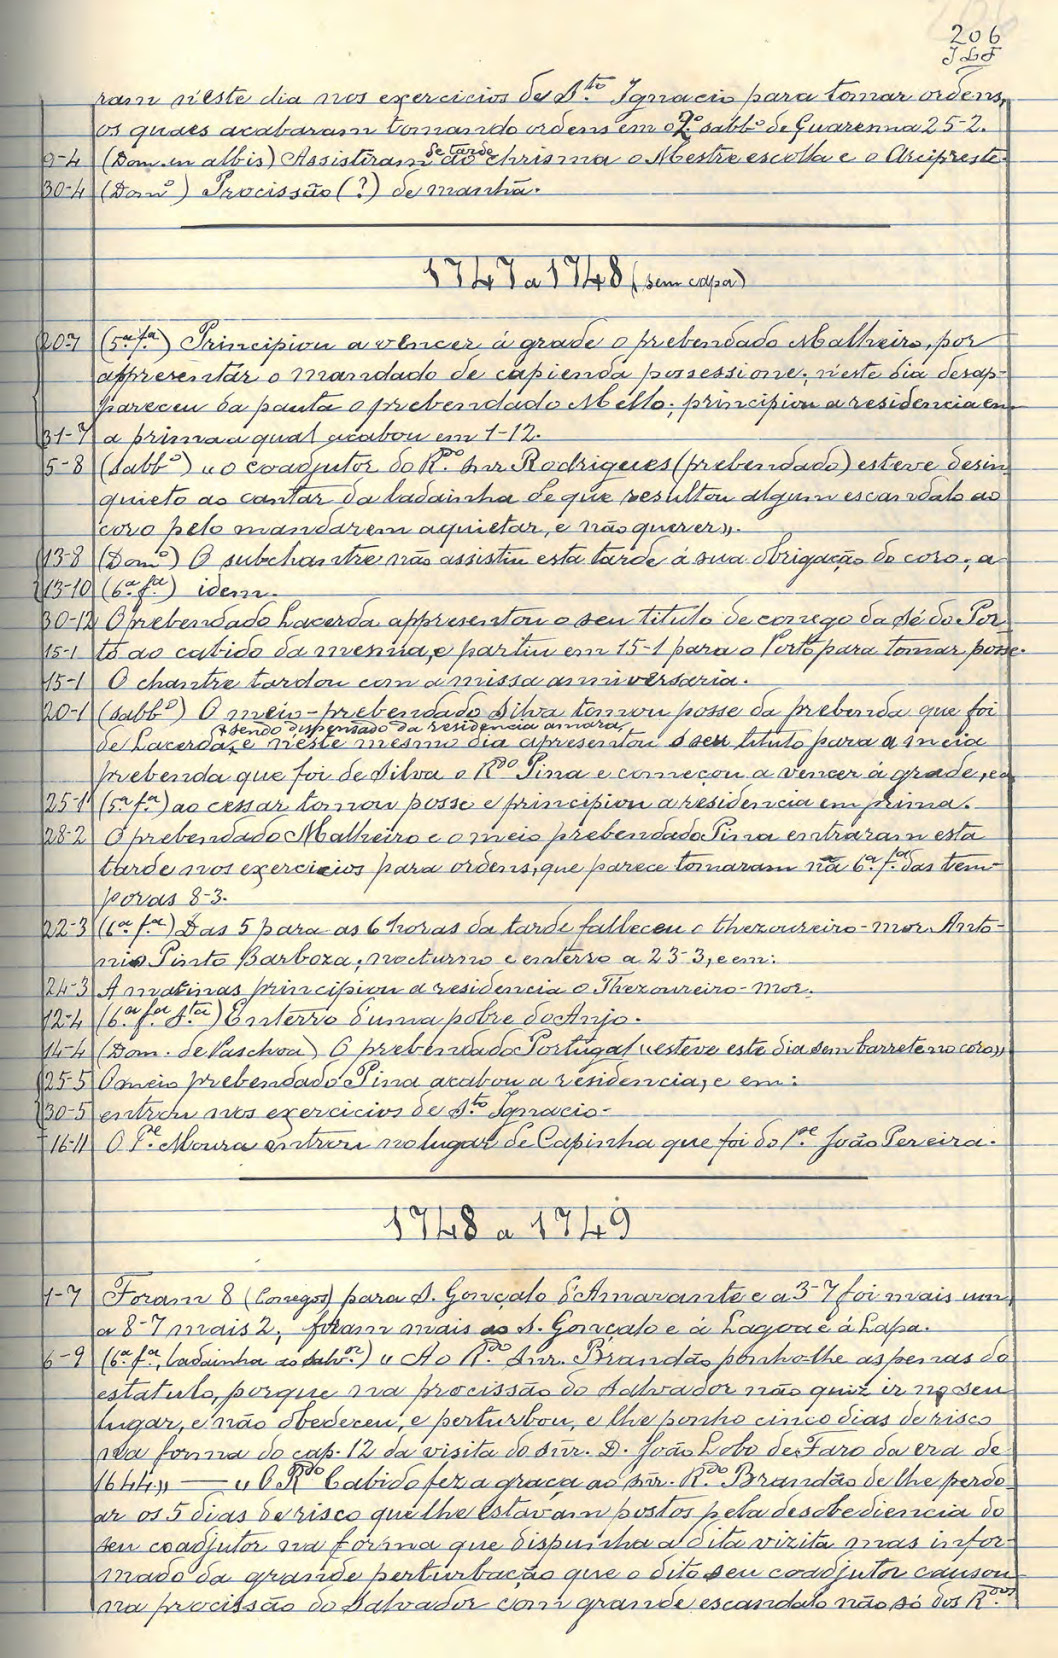 206
ram n'este dia nos exercicios de S.to Ignacio para tomar ordens,
os quaes acabaram tomando ordens em o 2.º sabb.º de Quaresma 25-2.
9-4 (Dom. in albis) Assistiram de tarde ao chrisma o Mestre escolla e o Arcipreste.
30-4 (Dom.º) Procissão (?) de manhã.
1747 a 1748 (sem capa)
20-7 (5.ª f.ª) Principiou a vencer á grade o prebendado Malheiro, por
appresentar o mandado de capienda possessione; n'este dia desap-
pareceu da pauta o prebendado Mello; principiou a residencia em
31-7 a prima a qual acabou em 1-12.
5-8 (sabb.º) "o coadjutor do R.do Snr Rodrigues (prebendado) esteve desin
quieto ao cantar da ladainha de que resultou algum escandalo ao
coro pelo mandarem aquietar, e não querer".
13-8 (Dom.º) O subchantre não assistiu esta tarde á sua obrigação do coro; a
13-10 (6.ª f.ª) idem.
30-12 O prebendado Lacerda appresentou o seu titulo de conego da Sé do Por-
15-1 to ao cabido da mesma, e partiu em 15-1 para o Porto para tomar posse.
15-1 O chantre tardou com a missa anniversaria.
20-1 (sabb.º) O meio-prebendado Silva tomou posse da prebenda que foi
+ sendo dispensado da residencia amara,
de Lacerda, e n'este mesmo dia apresentou o seu titulo para a meia
prebenda que foi de Silva o R.do Pina e começou a vencer á grade, e a
25-1 (5.ª f.ª) ao cessar tomou posse e principiou a residencia em prima.
28-2 O prebendado Malheiro e o meio prebendado Pina entraram esta
tarde nos exercicios para ordens, que parece tomaram na 6.ª f.ª das tem-
poras 8-3.
22-3 (6.ª f.ª) Das 5 para as 6 horas da tarde falleceu o thezoureiro-mor Anto-
nio Pinto Barboza; nocturno e enterro a 23-3, e em:
24-3 A matinas principiou a residencia o Thezoureiro-mor.
12-4 (6.ª f.ª S.ta) Enterro d'uma pobre do Anjo.
14-4 (Dom. de Paschoa) O prebendado Portugal "esteve este dia sem barrete no coro"
25-5 O meio prebendado Pina acabou a residencia, e em:
30-5 entrou nos exercicios de S.to Ignacio.
16-11 O P.e Moura entrou no lugar de Capinha que foi do P.e João Pereira.
1748 a 1749
1-7 Foram 8 (Conegos) para S. Gonçalo d'Amarante e a 3-7 foi mais um,
a 8-7 mais 2; foram mais ao S. Gonçalo e á Lagoa e á Lapa.
6-9 (6.ª f.ª, ladainha ao Salv.or) "Ao R.do Snr. Brandão ponho-lhe as penas do
estatuto, porque na procissão do Salvador não quiz ir no seu
lugar, e não obedeceu, e perturbou, e lhe ponho cinco dias de risco
na forma do cap. 12 da visita do snr. D. João Lobo de Faro da era de
1644" — "O R.do Cabido fez a graça ao snr. R.do Brandão de lhe perdo-
ar os 5 dias de risco que lhe estavam postos pela desobediencia do
seu coadjutor na forma que dispunha a dita vizita mas infor-
mado da grande perturbação que o dito seu coadjutor causou
na procissão do Salvador com grande escandalo não só dos R.dos